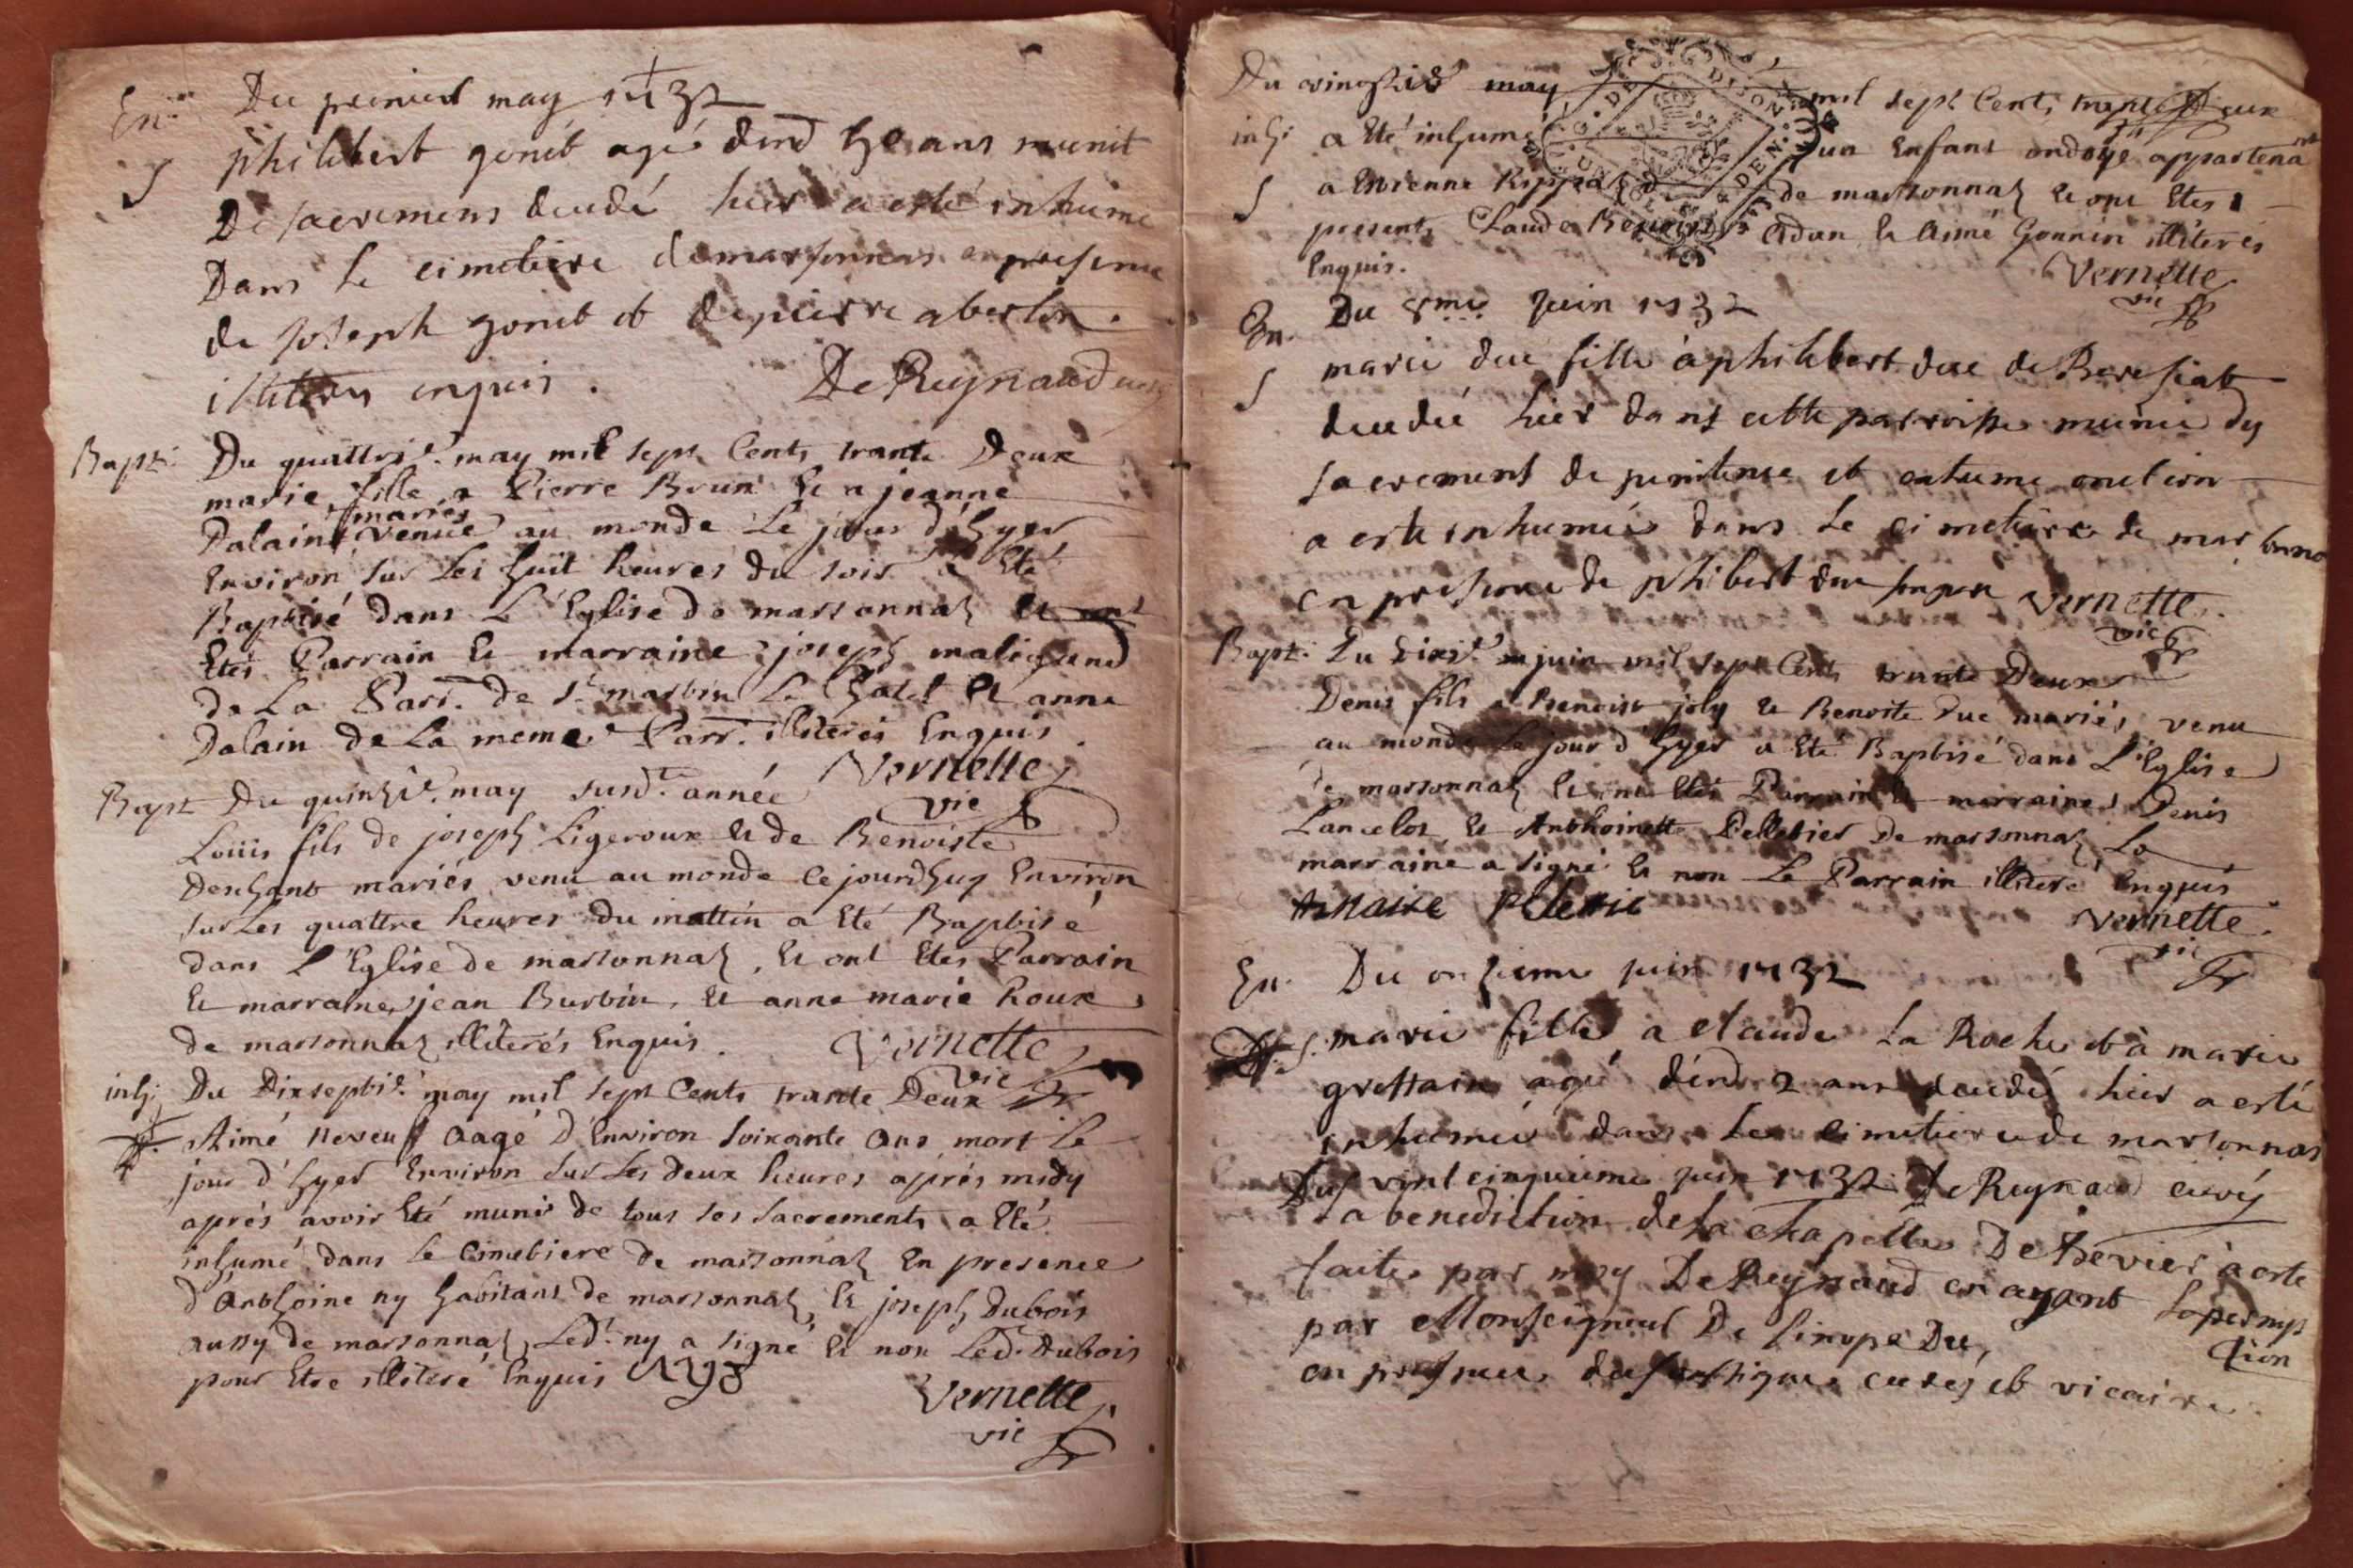 En.
Du premier may 1732
S philibert gonet agé dend 50 ans munit
De sacremens decedé hier a esté inhumé
Dans le cimetiere de marsonnas en presence
de joseph gonet et de pierre
illiteres enquis. De Reynaud
Bapt. Du quattrie. may mil sept Cents trante Deux
marie fille a Pierre Brun & a jeanne
Dalain mariés venüe au monde Le jour d'hyer
Environ sur Les huit heures du soir a Eté
Baptisé dans L'Eglise de marsonnaz & ont
Etés Parrain & marraine joseph
de La Parr. de St. martin Le Chatel & anne
Dalain de La meme Parr. illiterés Enquis.
Vernette
vic
Bapt Du quinzie. may susd. année
Loüis fils de joseph Ligeroux & de Benoiste
Deschant mariés venu au monde Cejourdhuy Environ
sur Les quattre heures du mattin a Eté Baptisé
dans L'Eglise de marsonnaz, & ont Etés Parrain
& marraine, jean Burtin, & anne marie Roux
de marsonnaz illiterés Enquis. Vernette
vic
inh. Du Dixseptie. may mil sept Cents trante Deux
Aimé neveu aagé d'Environ soixante ans mort le
jour d'hyer Environ sur Les deux heures aprés midy
aprés avoir Eté muni de tous les sacrements a Eté
inhumé dans le Cimetiere de marsonnaz En presence
d'anthoine ny habitant de marsonnaz, & joseph Dubois
aussy de marsonnaz, Led. ny a signé & non Led. Dubois
pour Etre illiteré Enquis
Vernette
vic
Du vingtie. may mil sept Cents trante Deux
inh. a Eté inhumé un Enfant ondoyé appartenant
S a Estienne de marsonnaz & ont Etés
presents Claude & Aimé Gonnin illiterés
Enquis. Vernette
vic
En. Du 8me juin 1732
S marie duc fille à philibert duc de Beresiat
decedée hier dans cette parroisse munie des
sacrement de penitence et extreme onction
a esté inhumée dans le cimetiere de
en presence de philibert duc son pere Vernette
vic
Bapt. Du dixie. juin mil sept Cents trante Deux
Denis fils a Benoist joly & Benoite Duc mariés, venu
au monde Le jour d'hyer a Eté Baptisé dans L'Eglise
de marsonnaz & ont Etés Parrain & marraine, Denis
Lancelot, & Anthoinette Pelletier de marsonnaz, La
marraine a signé & non Le Parrain illiteré Enquis
Vernette
vic
En. Du onzieme juin 1732
S. marie fille a claude La Roche et à marie
agé dend 2 ans decedé hier a esté
inhumée dans le cimetiere de marsonnas
Du vint cinquieme juin 1732 De Reynaud curé
la benediction de la chapelle De à esté
faite par moy De Reynaud en ayant la permis
tion
par Monseigneur De
en presence des soussignes curés et vicaire